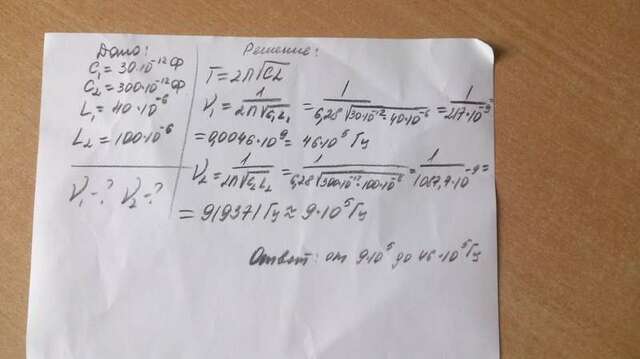 Дано:
C₁ = 30·10⁻¹² Ф
C₂ = 300·10⁻¹² Ф
L₁ = 40·10⁻⁶
L₂ = 100·10⁻⁶
ν₁ - ? ν₂ - ?
Решение:
T = 2π√CL
ν₁ = 1/(2π√C₁L₁) = 1/(6,28√30·10⁻¹²·40·10⁻⁶) = 1/(217·10⁻⁹) =
= 0,0046·10⁹ = 46·10⁵ Гц
ν₂ = 1/(2π√C₂L₂) = 1/(6,28√300·10⁻¹²·100·10⁻⁶) = 1/(1087,7·10⁻⁹) =
= 919371 Гц ≈ 9·10⁵ Гц
Ответ: от 9·10⁵ до 46·10⁵ Гц